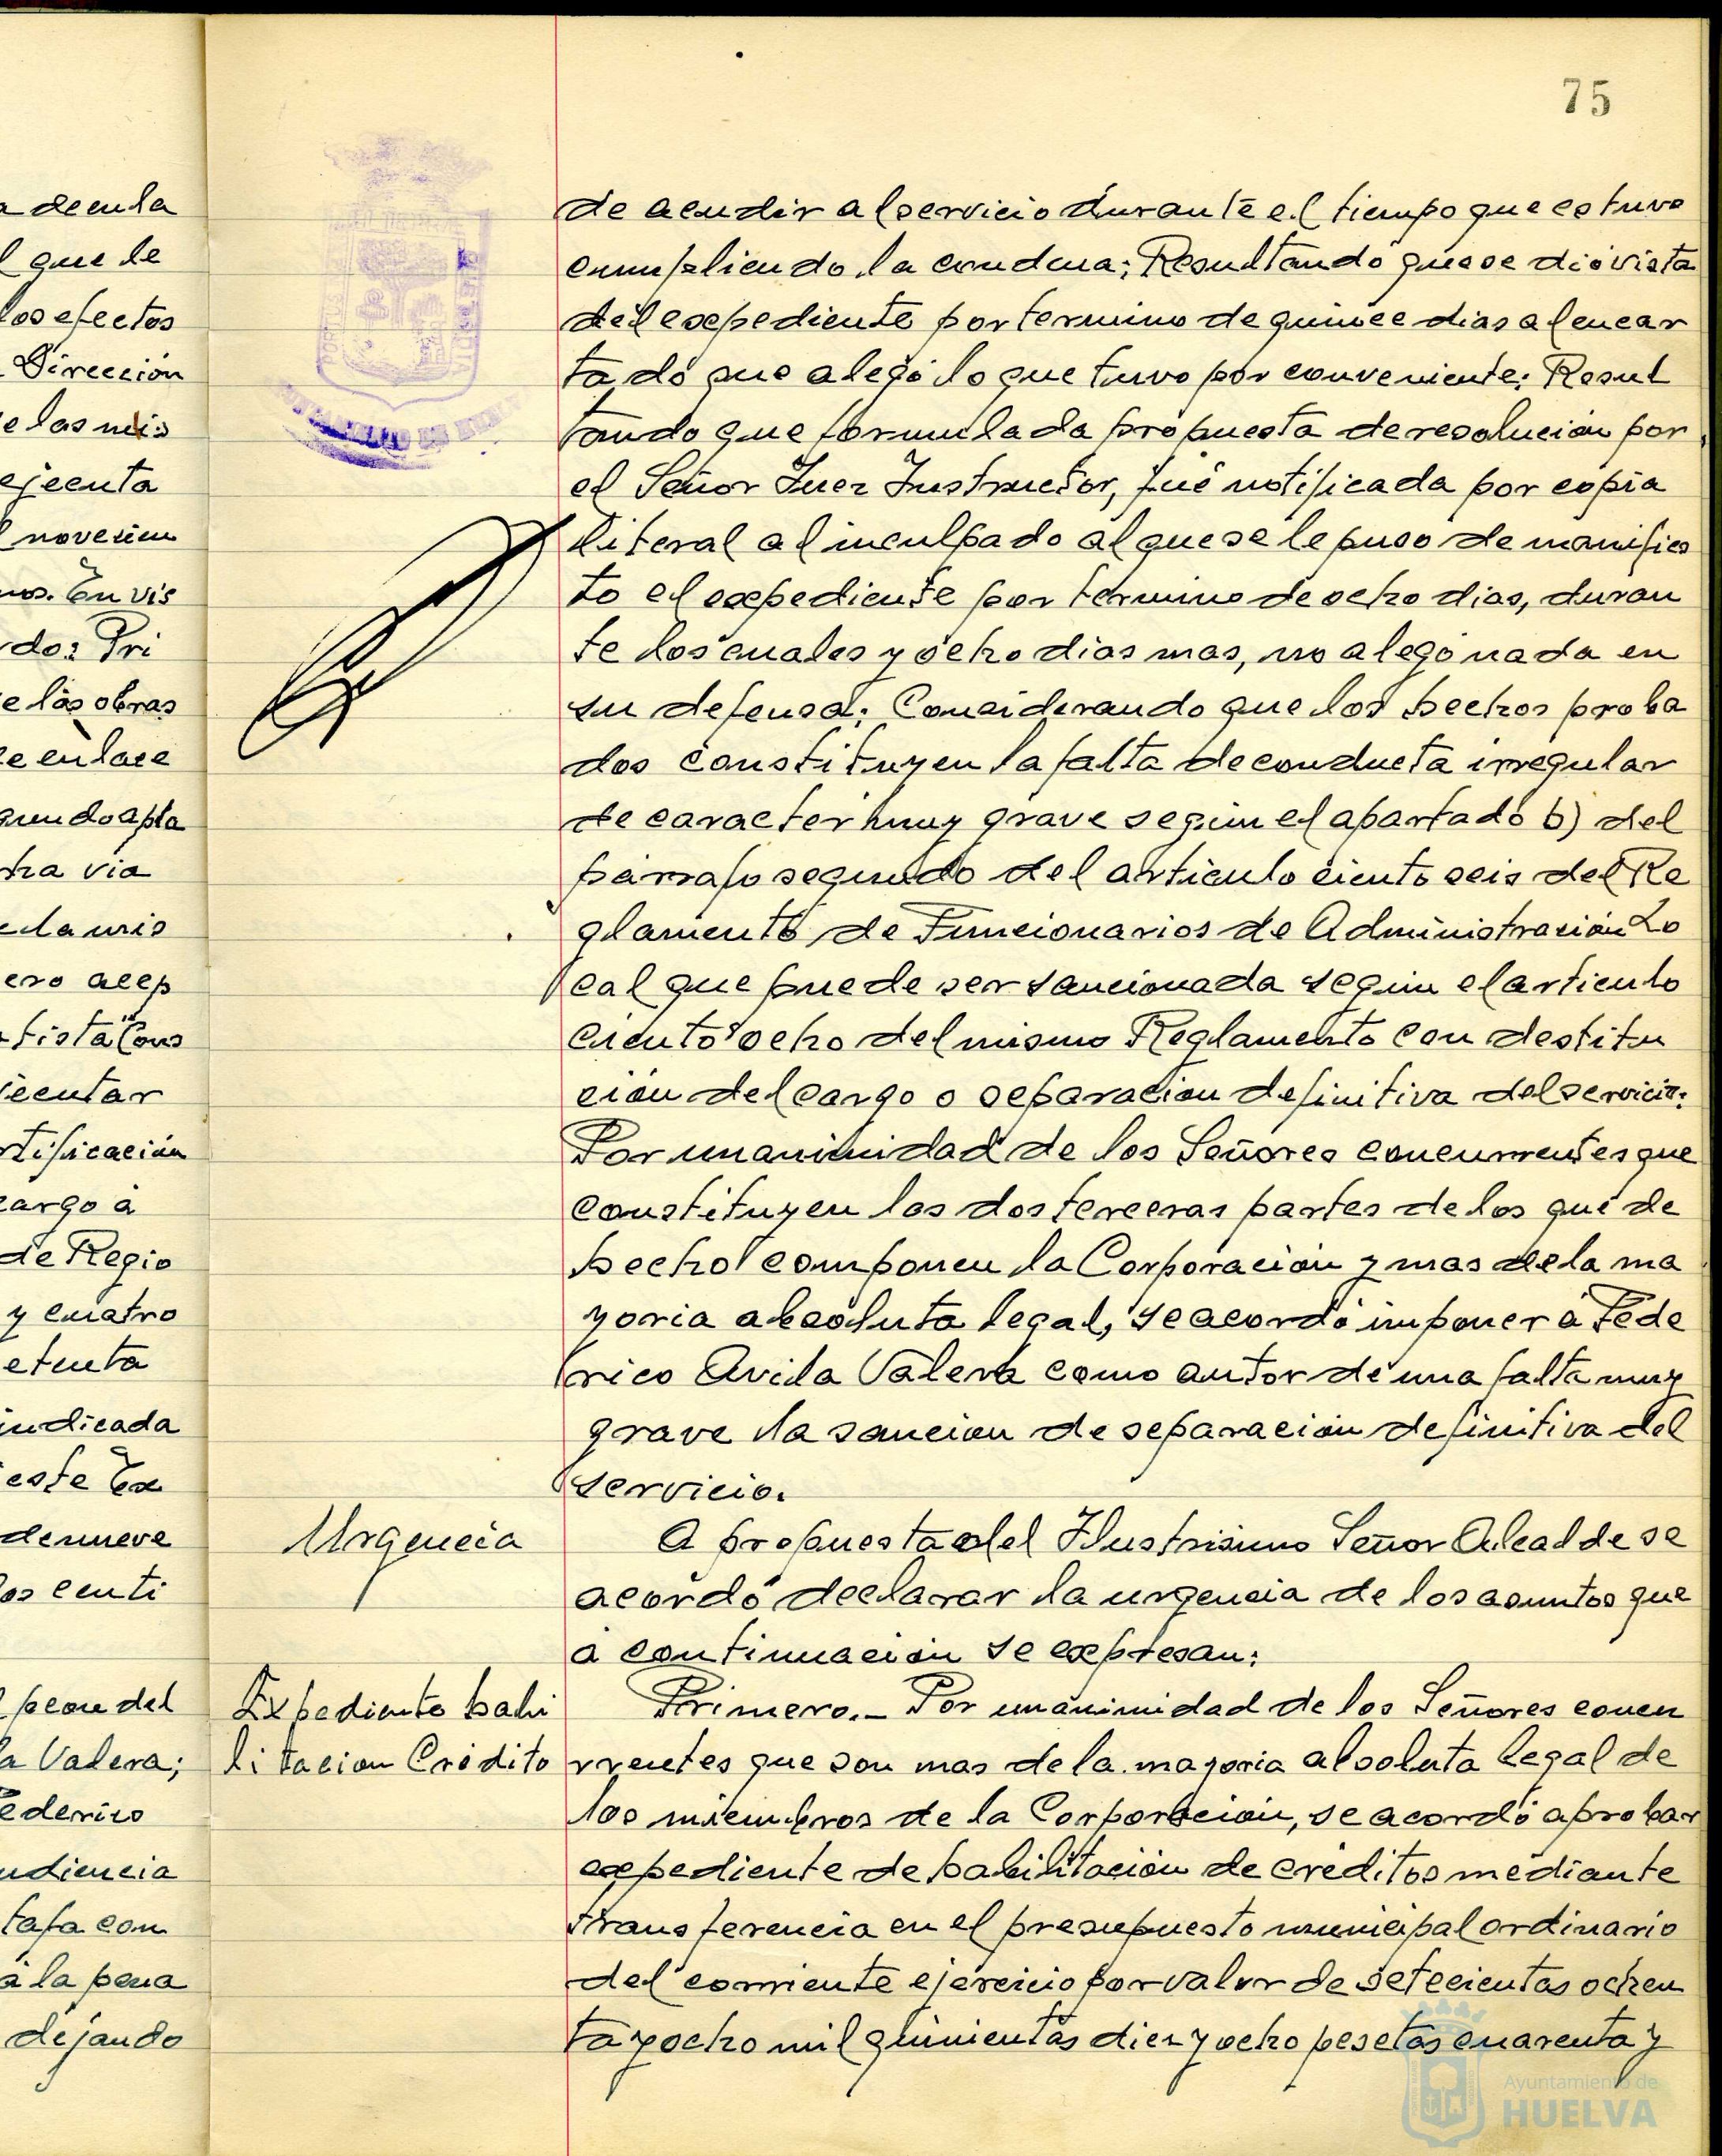 75
a de enla
l que le
los efectos
Dirección
e las mis
ejecuta
l novecien
nos. En vis
do: Pri
e las obras
e enlace
gundo apla
tra via
ero acep
tista Cons
jecutar
rtificación
cargo a
de Regio
y cuatro
etenta
indicada
este Ex
de nueve
os centi
peon del
a Valera;
Federico
udiencia
tafa con
a la pena
dejando
de acudir al servicio durante el tiempo que estuvo
cumpliendo la condena; Resultando que se dio vista
del expediente por termino de quince dias al encar
tado que alegó lo que tuvo por conveniente; Resul
tando que formulada propuesta de resolución por
el Señor Juez Instructor, fué notificada por copia
literal al inculpado al que se le puso de manifies
to el expediente por termino de ocho dias, duran
te los cuales y ocho dias mas, no alegó nada en
su defensa; Considerando que los hechos proba
dos constituyen la falta de conducta irregular
de caracter muy grave según el apartado b) del
párrafo segundo del articulo ciento seis del Re
glamento de Funcionarios de Administración Lo
cal que puede ser sancionada según el articulo
ciento ocho del mismo Reglamento con destitu
ción del cargo o separación definitiva del servicio;
Por unanimidad de los Señores concurrentes que
constituyen las dos terceras partes de los que de
hecho componen la Corporación y mas de la ma
yoria absoluta legal, se acordó imponer a Fede
rico Avila Valera como autor de una falta muy
grave la sanción de separación definitiva del
servicio.
Urgencia
A propuesta del Ilustrisimo Señor Alcalde se
acordó declarar la urgencia de los asuntos que
a continuación se expresan:
Expediente habi
litacion Crédito
Primero.- Por unanimidad de los Señores concu
rrentes que son mas de la mayoria absoluta legal de
los miembros de la Corporación, se acordó aprobar
expediente de habilitación de créditos mediante
transferencia en el presupuesto municipal ordinario
del corriente ejercicio por valor de setecientas ochen
ta y ocho mil quinientas diez y ocho pesetas cuarenta y
Ayuntamiento de
HUELVA